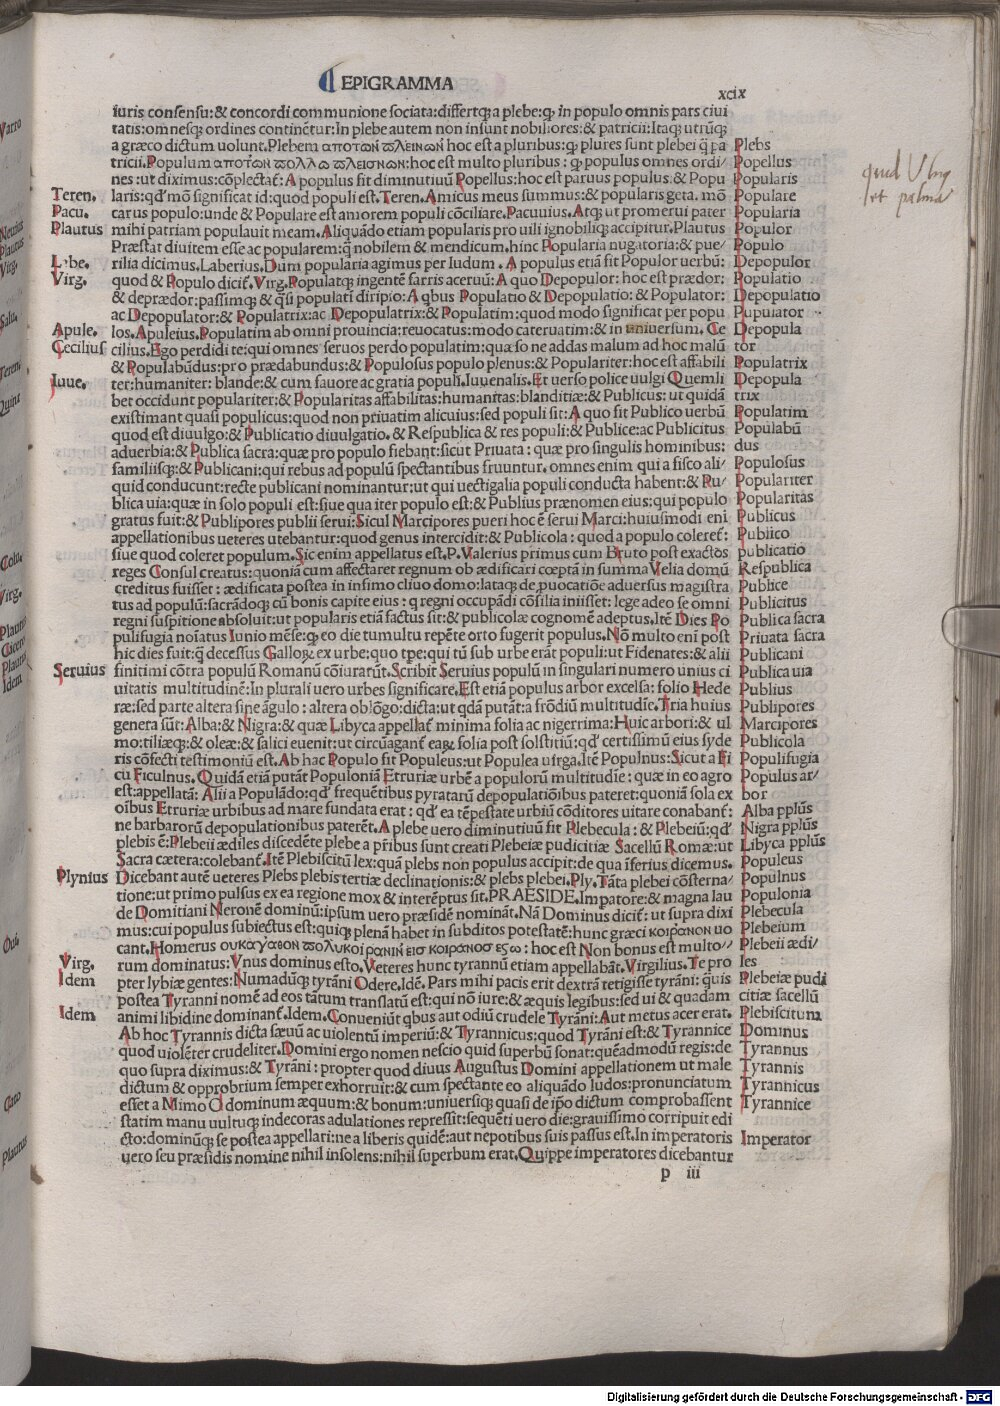 EPIGRAMMA
xcix
iuris consensu:& concordi communione sociata:differtq; a plebe:ꝙ in populo omnis pars ciui
tatis:omnesq; ordines continẽtur:In plebe autem non insunt nobiliores:& patricii:Itaq; utrũq;
a græco dictum uolunt.Plebem αποτῶν πλεινῶν hoc est a pluribus:ꝙ plures sunt plebei q̃ pa
tricii.Populum αποτῶν πολλω πλεισνων:hoc est multo pluribus : ꝙ populus omnes ordi/
nes:ut diximus:cõplectat̃: A populus fit diminutiuũ Popellus:hoc est paruus populus:& Popu
laris:qd' mõ significat id:quod populi est.Teren.Amicus meus summus:& popularis geta. mõ
carus populo:unde & Populare est amorem populi cõciliare.Pacuuius.Atq; ut promerui pater
mihi patriam populauit meam.Aliquãdo etiam popularis pro uili ignobiliq; accipitur.Plautus
Præstat diuitem esse ac popularem:q̃ nobilem & mendicum.hinc Popularia nugatoria:& pue/
rilia dicimus.Laberius.Dum popularia agimus per ludum . A populus etiã fit Populor uerbũ:
quod & Populo dicit̃.Virg.Populatq; ingentẽ farris aceruũ:A quo Depopulor: hoc est prædor:
& deprædor:passimq; & q̃si populati diripio:A qbus Populatio & Depopulatio: & Populator:
ac Depopulator:& Populatrix:ac Depopulatrix:& Populatim:quod modo significat per popu
los.Apuleius.Populatim ab omni prouincia:reuocatus:modo cateruatim:& in uniuersum. Ce
cilius.Ego perdidi te:qui omnes seruos perdo populatim:quæso ne addas malum ad hoc malũ
& Populabũdus:pro prædabundus:& Populosus populo plenus:& Populariter:hoc est affabili
ter:humaniter: blande:& cum fauore ac gratia populi.Iuuenalis.Et uerso police uulgi Quemli
bet occidunt populariter:& Popularitas affabilitas:humanitas:blanditiæ:& Publicus: ut quidã
existimant quasi populicus:quod non priuatim alicuius:sed populi sit:A quo fit Publico uerbũ
quod est diuulgo:& Publicatio diuulgatio.& Respublica & res populi:& Publice:ac Publicitus
aduerbia:& Publica sacra:quæ pro populo fiebant:sicut Priuata: quæ pro singulis hominibus:
familiisq;:& Publicani:qui rebus ad populũ spectantibus fruuntur.omnes enim qui a fisco ali/
quid conducunt:recte publicani nominantur:ut qui uectigalia populi conducta habent:& Pu/
blica uia:quæ in solo populi est:siue qua iter populo est:& Publius prænomen eius:qui populo
gratus fuit:& Publipores publii serui:Sicut Marcipores pueri hoc ẽ serui Marci:huiusmodi eni
appellationibus ueteres utebantur:quod genus intercidit:& Publicola : quod a populo coleret̃:
siue quod coleret populum.Sic enim appellatus est.P.Valerius primus cum Bruto post exactos
reges Consul creatus:quoniã cum affectaret regnum ob ædificari cœptã in summa Velia domũ
creditus fuisset : ædificata postea in infimo cliuo domo:lataq; de puocatiõe aduersus magistra
tus ad populũ:sacrãdoq; cũ bonis capite eius : q regni occupãdi cõsilia iniisset: lege adeo se omni
regni suspitione absoluit:ut popularis etiã factus sit:& publicolæ cognomẽ adeptus.Itẽ Dies Po
pulifugia noĩatus Iunio mẽse:ꝙ eo die tumultu repẽte orto fugerit populus.Nõ multo eni post
hic dies fuit:q̃ decessus Galloꝝ ex urbe:quo tpe:qui tũ sub urbe erãt populi:ut Fidenates:& alii
finitimi cõtra populũ Romanũ cõiurarũt.Scribit Seruius populũ in singulari numero unius ci
uitatis multitudinẽ:In plurali uero urbes significare.Est etiã populus arbor excelsa: folio Hede
ræ:sed parte altera sine ãgulo : altera oblõgo:dicta:ut qdã putãt:a frõdiũ multitudie.Tria huius
genera sũt:Alba:& Nigra:& quæ Libyca appellat̃ minima folia ac nigerrima:Huic arbori:& ul
mo:tiliæq;:& oleæ:& salici euenit:ut circũagant̃ eaꝝ folia post solstitiũ:qd' certissimũ eius syde
ris cõfecti testimoniũ est.Ab hac Populo fit Populeus:ut Populea uirga.Itẽ Populnus:Sicut a Fi
cu Ficulnus. Quidã etiã putãt Populoniã Etruriæ urbẽ a populorũ multitudie: quæ in eo agro
est:appellatã: Alii a Populãdo:qd' frequẽtibus pyratarũ depopulatiõibus pateret:quoniã sola ex
oĩbus Etruriæ urbibus ad mare fundata erat : qd' ea tẽpestate urbiũ cõditores uitare conabant̃:
ne barbarorũ depopulationibus paterẽt.A plebe uero diminutiuũ fit Plebecula : & Plebeiũ:qd'
plebis ẽ:Plebeii ædiles discedẽte plebe a pr̃ibus sunt creati Plebeiæ pudicitiæ Sacellũ Romæ:ut
Sacra cætera:colebant̃.Itẽ Plebiscitũ lex:quã plebs non populus accipit:de qua ĩferius dicemus.
Dicebant autẽ ueteres Plebs plebis tertiæ declinationis:& plebs plebei.Ply.Tãta plebei cõsterna/
tione:ut primo pulsus ex ea regione mox & interẽptus sit.PRAESIDE.Impatore:& magna lau
de Domitiani Neronẽ dominũ:ipsum uero præsidẽ nominãt.Nã Dominus dicit̃: ut supra dixi
mus:cui populus subiectus est:quiq; plenã habet in subditos potestatẽ:hunc græci κοιρανον uo
cant.Homerus ουκαγαθον πολυκοιρανιн εισ κοιρανοσ εςω : hoc est Non bonus est multo/
rum dominatus: Vnus dominus esto.Veteres hunc tyrannũ etiam appellabãt.Virgilius.Te pro
pter lybiæ gentes:Numadũq; tyrãni Odere.Idẽ.Pars mihi pacis erit dextrã tetigisse tyrãni: q̃uis
postea Tyranni nomẽ ad eos tãtum translatũ est:qui nõ iure:& æquis legibus:sed ui & quadam
animi libidine dominant̃.Idem.Conueniũt qbus aut odiũ crudele Tyrãni:Aut metus acer erat.
Ab hoc Tyrannis dicta sæuũ ac uiolentũ imperiũ:& Tyrannicus:quod Tyrãni est:& Tyrannice
quod uiolẽter crudeliter.Domini ergo nomen nescio quid superbũ sonat:quẽadmodũ regis:de
quo supra diximus:& Tyrãni : propter quod diuus Augustus Domini appellationem ut male
dictum & opprobrium semper exhorruit:& cum spectante eo aliquãdo ludos:pronunciatum
esset a Mimo O dominum æquum:& bonum:uniuersiq; quasi de ip̃o dictum comprobassent
statim manu uultuq; indecoras adulationes repressit:sequẽti uero die:grauissimo corripuit edi
cto:dominũq; se postea appellari:ne a liberis quidẽ:aut nepotibus suis passus est.In imperatoris
uero seu præsidis nomine nihil insolens:nihil superbum erat.Quippe imperatores dicebantur
p iii
Teren.
Pacu.
Plautus
Labe.
Virg.
Apule.
Cecilius
Iuue.
Seruius
Plynius
Virg.
Idem
Idem
Plebs
Popellus
Popularis
Populare
Popularia
Populor
Populo
Depopulor
Populatio
Depopulatio
Populator
Depopula
tor
Populatrix
Depopula
trix
Populatim
Populabũ
dus
Populosus
Populariter
Popularitas
Publicus
Publico
publicatio
Respublica
Publice
Publicitus
Publica sacra
Priuata sacra
Publicani
Publica uia
Publius
Publipores
Marcipores
Publicola
Populifugia
Populus ar/
bor
Alba pplũs
Nigra pplũs
Libyca pplũs
Populeus
Populnus
Populonia
Plebecula
Plebeium
Plebeii ædi/
les
Plebeiæ pudi
citiæ sacellũ
Plebiscitum
Dominus
Tyrannus
Tyrannis
Tyrannicus
Tyrannice
Imperator
Varro
Neuius
Plautus
Virg.
Salu.
Tereni
Quint
Colu.
Virg.
Plautus
Cicero
Plaut
Idem
Oui.
Cato
Plautus
Digitalisierung gefördert durch die Deutsche Forschungsgemeinschaft - DFG